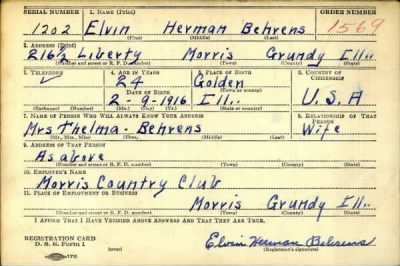 SERIAL NUMBER 1. NAME (Print) ORDER NUMBER
1202 Elvin Herman Behrens 1569
(First) (Middle) (Last)
2. ADDRESS (Print)
216½ Liberty Morris Grundy Ill.
(Number and street or R. F. D. number) (Town) (County) (State)
3. TELEPHONE 4. AGE IN YEARS 5. PLACE OF BIRTH 6. COUNTRY OF CITIZENSHIP
24 Golden
(Town or county)
DATE OF BIRTH
2-9-1916 Ill. U.S.A
(Exchange) (Number) (Mo.) (Day) (Yr.) (State or country)
7. NAME OF PERSON WHO WILL ALWAYS KNOW YOUR ADDRESS 8. RELATIONSHIP OF THAT PERSON
Mrs Thelma Behrens Wife
(Mr., Mrs., Miss) (First) (Middle) (Last)
9. ADDRESS OF THAT PERSON
As above
(Number and street or R. F. D. number) (Town) (County) (State)
10. EMPLOYER'S NAME
Morris Country Club
11. PLACE OF EMPLOYMENT OR BUSINESS
Morris Grundy Ill.
(Number and street or R. F. D. number) (Town) (County) (State)
I AFFIRM THAT I HAVE VERIFIED ABOVE ANSWERS AND THAT THEY ARE TRUE.
REGISTRATION CARD
D. S. S. Form 1 Elvin Herman Behrens
(over) (Registrant's signature)